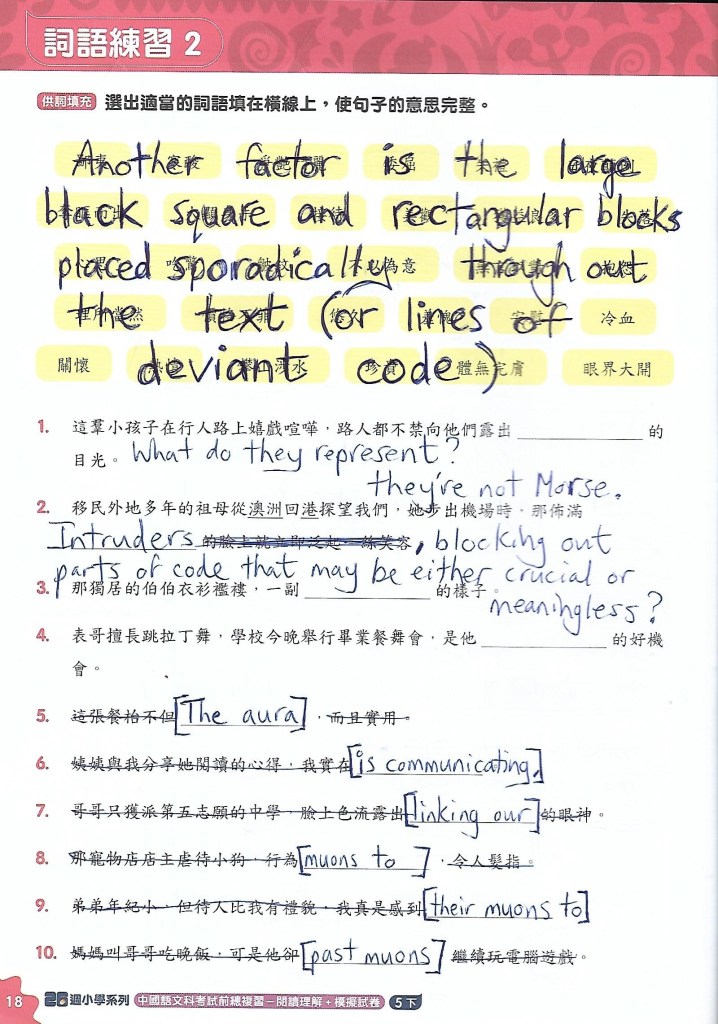 詞語練習 2
供詞填充 選出適當的詞語填在橫線上，使句子的意思完整。
Another factor is the large
black square and rectangular blocks
placed sporadically through out
the text (or lines of
冷血
deviant code)
關懷 珍貴 體無完膚 眼界大開
1. 這羣小孩子在行人路上嬉戲喧嘩，路人都不禁向他們露出 的
目光。 What do they represent?
they're not Morse.
2. 移民外地多年的祖母從澳洲回港探望我們，她步出機場時，那佈滿
Intruders 的臉上就立即泛起一絲笑容, blocking out
parts of code that may be either crucial or
3. 那獨居的伯伯衣衫襤褸，一副 的樣子。
meaningless?
4. 表哥擅長跳拉丁舞，學校今晚舉行畢業餐舞會，是他 的好機
會。
5. 這張餐枱不但 [The aura] ，而且實用。
6. 姨姨與我分享她閱讀的心得，我實在 [is communicating,]
7. 哥哥只獲派第五志願的中學，臉上色流露出 [linking our] 的眼神。
8. 那寵物店店主虐待小狗，行為 [muons to ] ，令人髮指。
9. 弟弟年紀小，但待人比我有禮貌，我真是感到 [their muons to]
10. 媽媽叫哥哥吃晚飯，可是他卻 [past muons] 繼續玩電腦遊戲。
18 26週小學系列 中國語文科考試前總複習－閱讀理解＋模擬試卷 5下